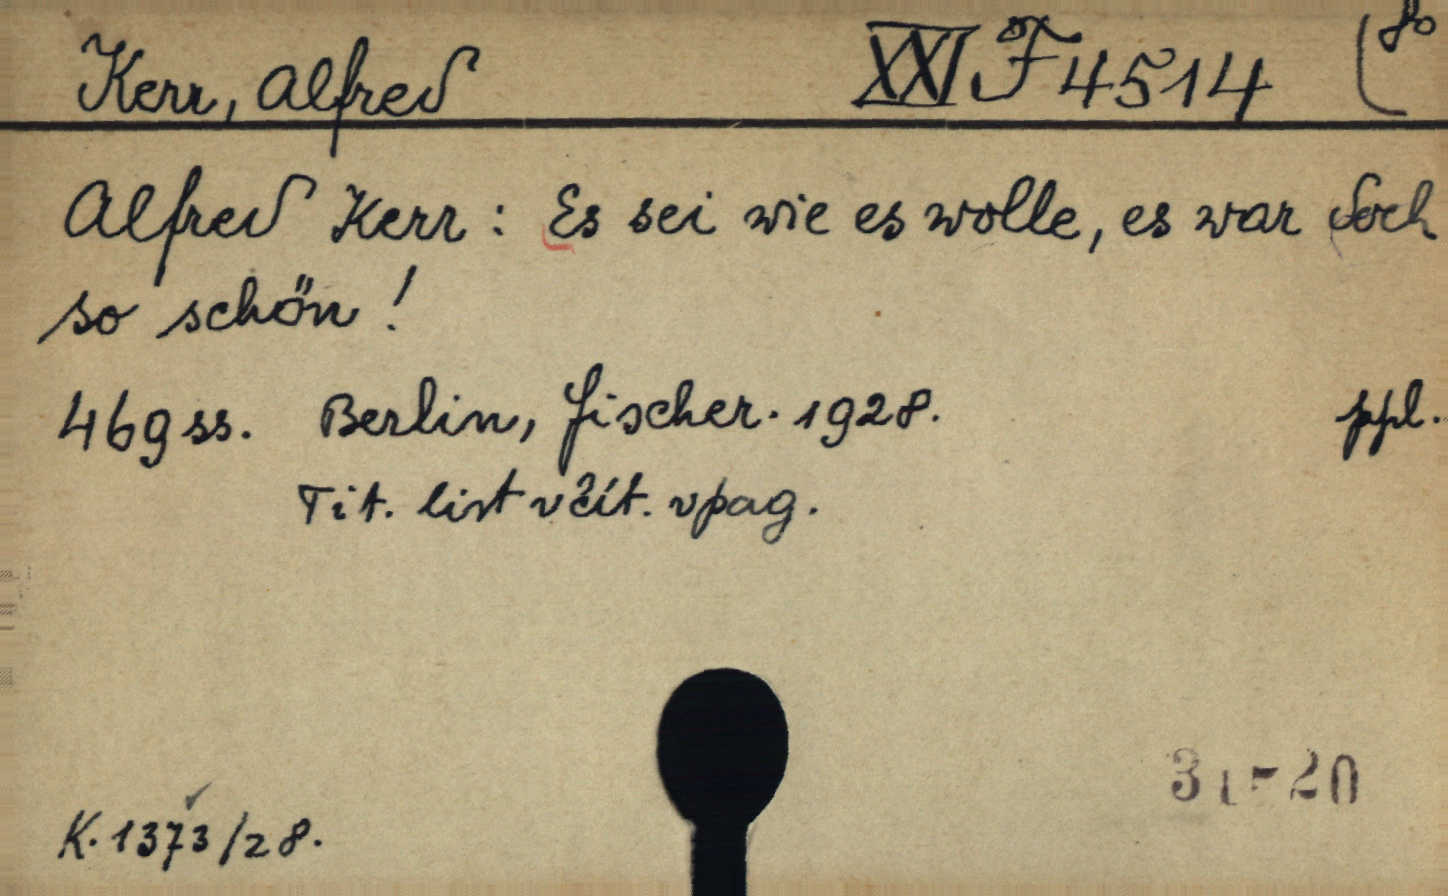 Kerr, Alfred XXI F 4514 (80
Alfred Kerr: Es sei wie es wolle, es war doch
so schön!
469 ss. Berlin, Fischer. 1928. ppl.
Tit. list včít. vpag.
31-20
K. 1373/28.